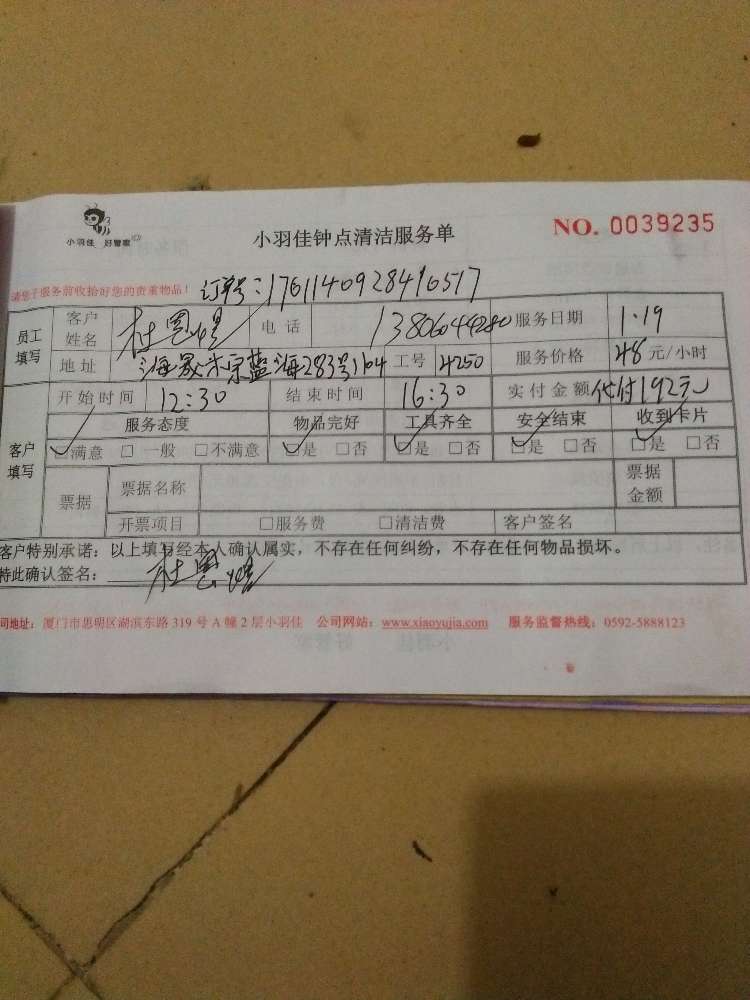 小羽佳 好管家
小羽佳钟点清洁服务单
NO. 0039235
请您于服务前收拾好您的贵重物品！ 订单号：1761140928416517
员工填写 客户姓名 杜恩 电话 13806044280 服务日期 1.19
地址 海 京蓝海283号1104 工号 4250 服务价格 48 元/小时
客户填写 开始时间 12:30 结束时间 16:30 实付金额 代付192元
服务态度 物品完好 工具齐全 安全结束 收到卡片
☑满意 □ 一般 □不满意 ☑是 □否 ☑是 □否 ☑是 □否 ☑是 □否
票据 票据名称 票据金额
开票项目 □服务费 □清洁费 客户签名
客户特别承诺：以上填写经本人确认属实，不存在任何纠纷，不存在任何物品损坏。
特此确认签名： 杜恩
司地址：厦门市思明区湖滨东路 319 号 A 幢 2 层小羽佳 公司网站：www.xiaoyujia.com 服务监督热线：0592-5888123